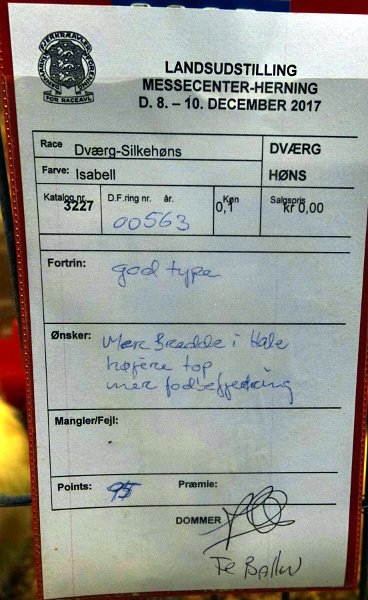 DANMARKS FJERKRÆAVLERFORENING
FOR RACEAVL
LANDSUDSTILLING
MESSECENTER-HERNING
D. 8. – 10. DECEMBER 2017
Race Dværg-Silkehøns DVÆRG
Farve: Isabell HØNS
Katalog nr. 3227 D.F.ring nr. år. 00563 Køn 0,1 Salgspris kr 0,00
Fortrin: god type
Ønsker: Mere Bredde i Hale
højere top
mer fodbefjedring
Mangler/Fejl:
Points: 95 Præmie:
DOMMER